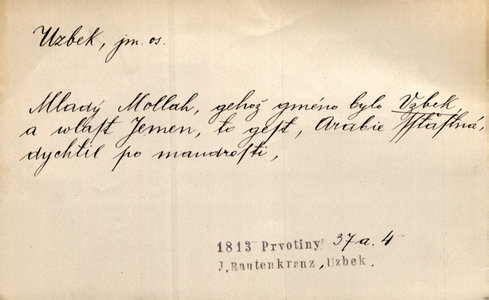 Uzbek, jm. os.
Mladý Mollah, gehož gméno bylo Vzbek,
a wlast Jemen, to gest, Arabie Šťastná,
dychtil po maudrosti,
1813 Prvotiny 37a.4
J.Rautenkranz, Uzbek.